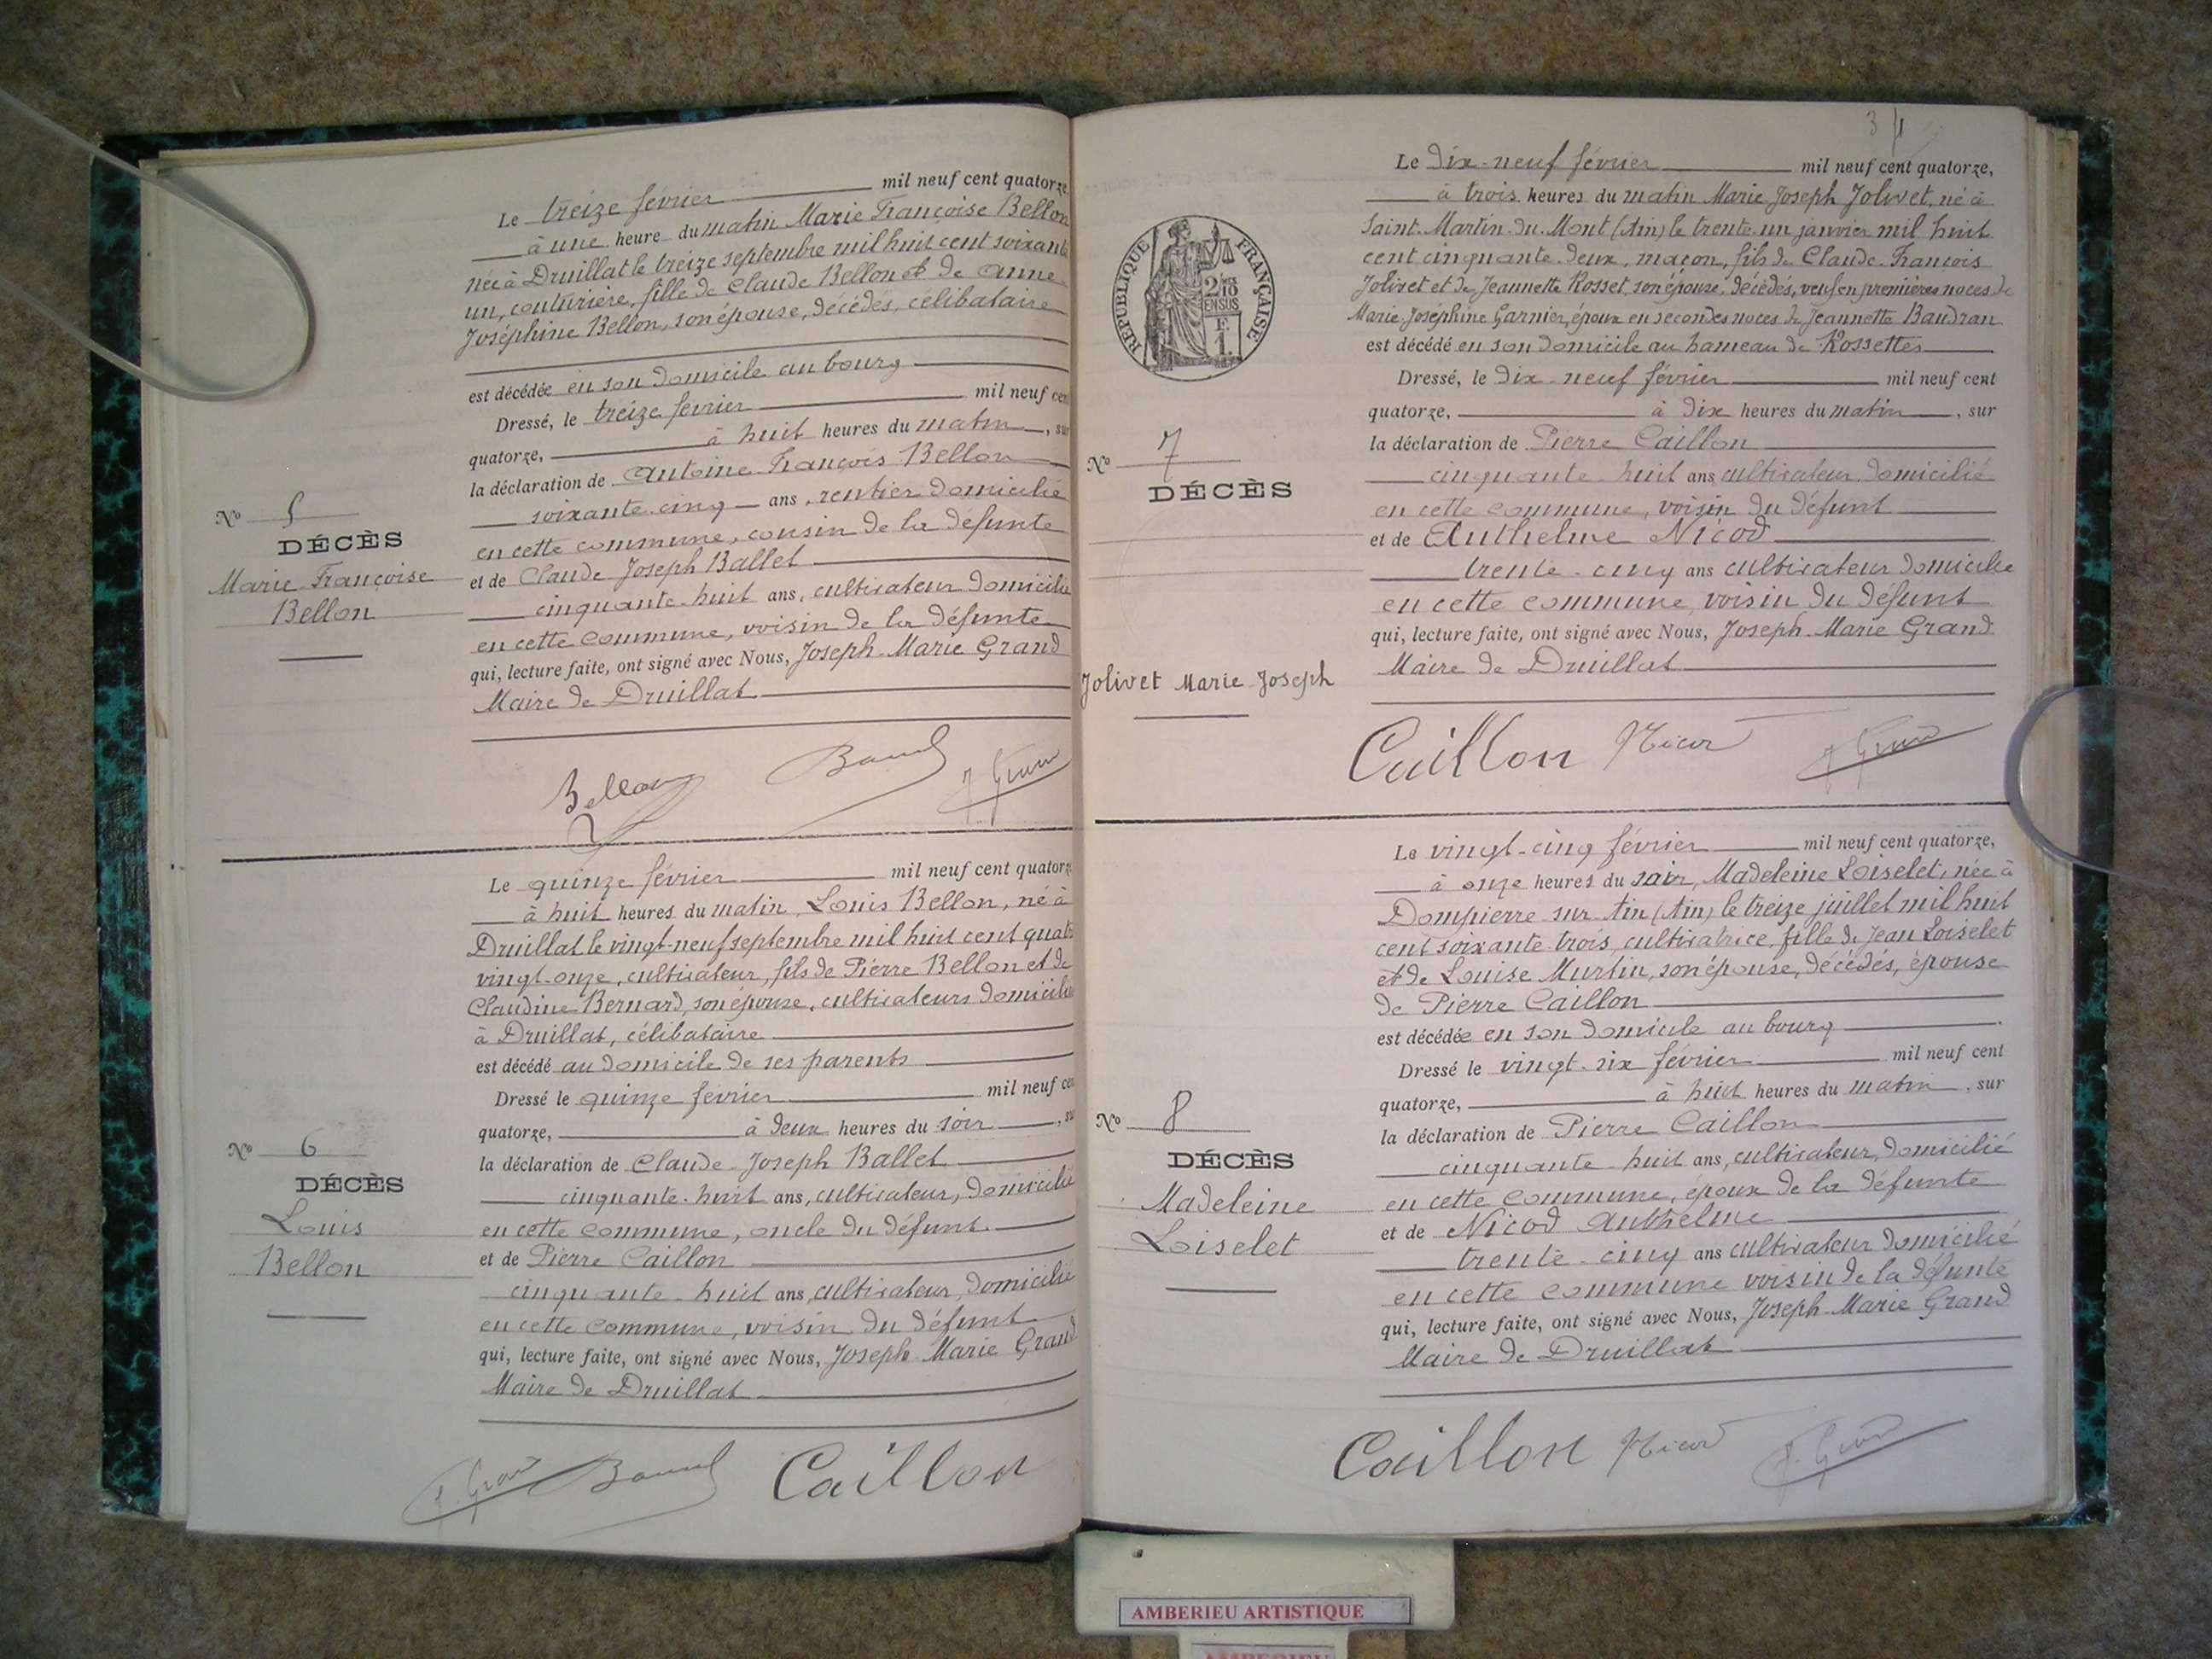 Le treize février mil neuf cent quatorze
à une heure du matin Marie Françoise Bellon
née à Druillat le treize septembre mil huit cent soixante
un, couturière, fille de Claude Bellon et de Anne
Joséphine Bellon, son épouse, décédés, célibataire
est décédée en son domicile au bourg
Dressé, le treize février mil neuf cent
quatorze, à huit heures du matin, sur
la déclaration de Antoine François Bellon
soixante-cinq ans, rentier domicilié
en cette commune, cousin de la défunte
et de Claude Joseph Ballet
cinquante-huit ans, cultivateur domicilié
en cette commune, voisin de la défunte
qui, lecture faite, ont signé avec Nous, Joseph-Marie Grand
Maire de Druillat
No 5
DÉCÈS
Marie Françoise
Bellon
Bellon J. Grand
Le quinze février mil neuf cent quatorze
à huit heures du matin, Louis Bellon, né à
Druillat le vingt-neuf septembre mil huit cent quatre
vingt-onze, cultivateur, fils de Pierre Bellon et de
Claudine Bernard, son épouse, cultivateurs domiciliés
à Druillat, célibataire
est décédé au domicile de ses parents
Dressé le quinze février mil neuf cent
quatorze, à deux heures du soir, sur
la déclaration de Claude-Joseph Ballet
cinquante-huit ans, cultivateur, domicilié
en cette commune, oncle du défunt
et de Pierre Caillon
cinquante-huit ans, cultivateur, domicilié
en cette commune, voisin du défunt
qui, lecture faite, ont signé avec Nous, Joseph Marie Grand
Maire de Druillat
No 6
DÉCÈS
Louis
Bellon
J. Grand Caillon
3
RÉPUBLIQUE FRANÇAISE
2/10 EN SUS
F. 1.
Le Dix-neuf février mil neuf cent quatorze,
à trois heures du matin Marie Joseph Jolivet, né à
Saint-Martin-du-Mont (Ain) le trente-un janvier mil huit
cent cinquante-deux, maçon, fils de Claude-François
Jolivet et de Jeannette Rosset, son épouse, décédés, veuf en premières noces de
Marie Joséphine Garnier, époux en secondes noces de Jeannette Baudran
est décédé en son domicile au hameau de Rossettes
Dressé, le Dix-neuf février mil neuf cent
quatorze, à Dix heures du matin, sur
la déclaration de Pierre Caillon
cinquante-huit ans, cultivateur, domicilié
en cette commune, voisin du défunt
et de Authelme Nicod
trente-cinq ans cultivateur domicilié
en cette commune voisin du défunt
qui, lecture faite, ont signé avec Nous, Joseph-Marie Grand
Maire de Druillat
No 7
DÉCÈS
Jolivet Marie-Joseph
Caillon Nicod J. Grand
Le vingt-cinq février mil neuf cent quatorze,
à onze heures du soir, Madeleine Loiselet, née à
Dompierre-sur-Ain (Ain) le treize juillet mil huit
cent soixante-trois, cultivatrice, fille de Jean Loiselet
et de Louise Murtin, son épouse, décédés, épouse
de Pierre Caillon
est décédée en son domicile au bourg
Dressé le vingt-six février mil neuf cent
quatorze, à huit heures du matin, sur
la déclaration de Pierre Caillon
cinquante-huit ans, cultivateur, domicilié
en cette commune, époux de la défunte
et de Nicod Authelme
trente-cinq ans cultivateur domicilié
en cette commune voisin de la défunte
qui, lecture faite, ont signé avec Nous, Joseph-Marie Grand
Maire de Druillat
No 8
DÉCÈS
Madeleine
Loiselet
Caillon Nicod J. Grand
AMBERIEU ARTISTIQUE
AMBERIEU